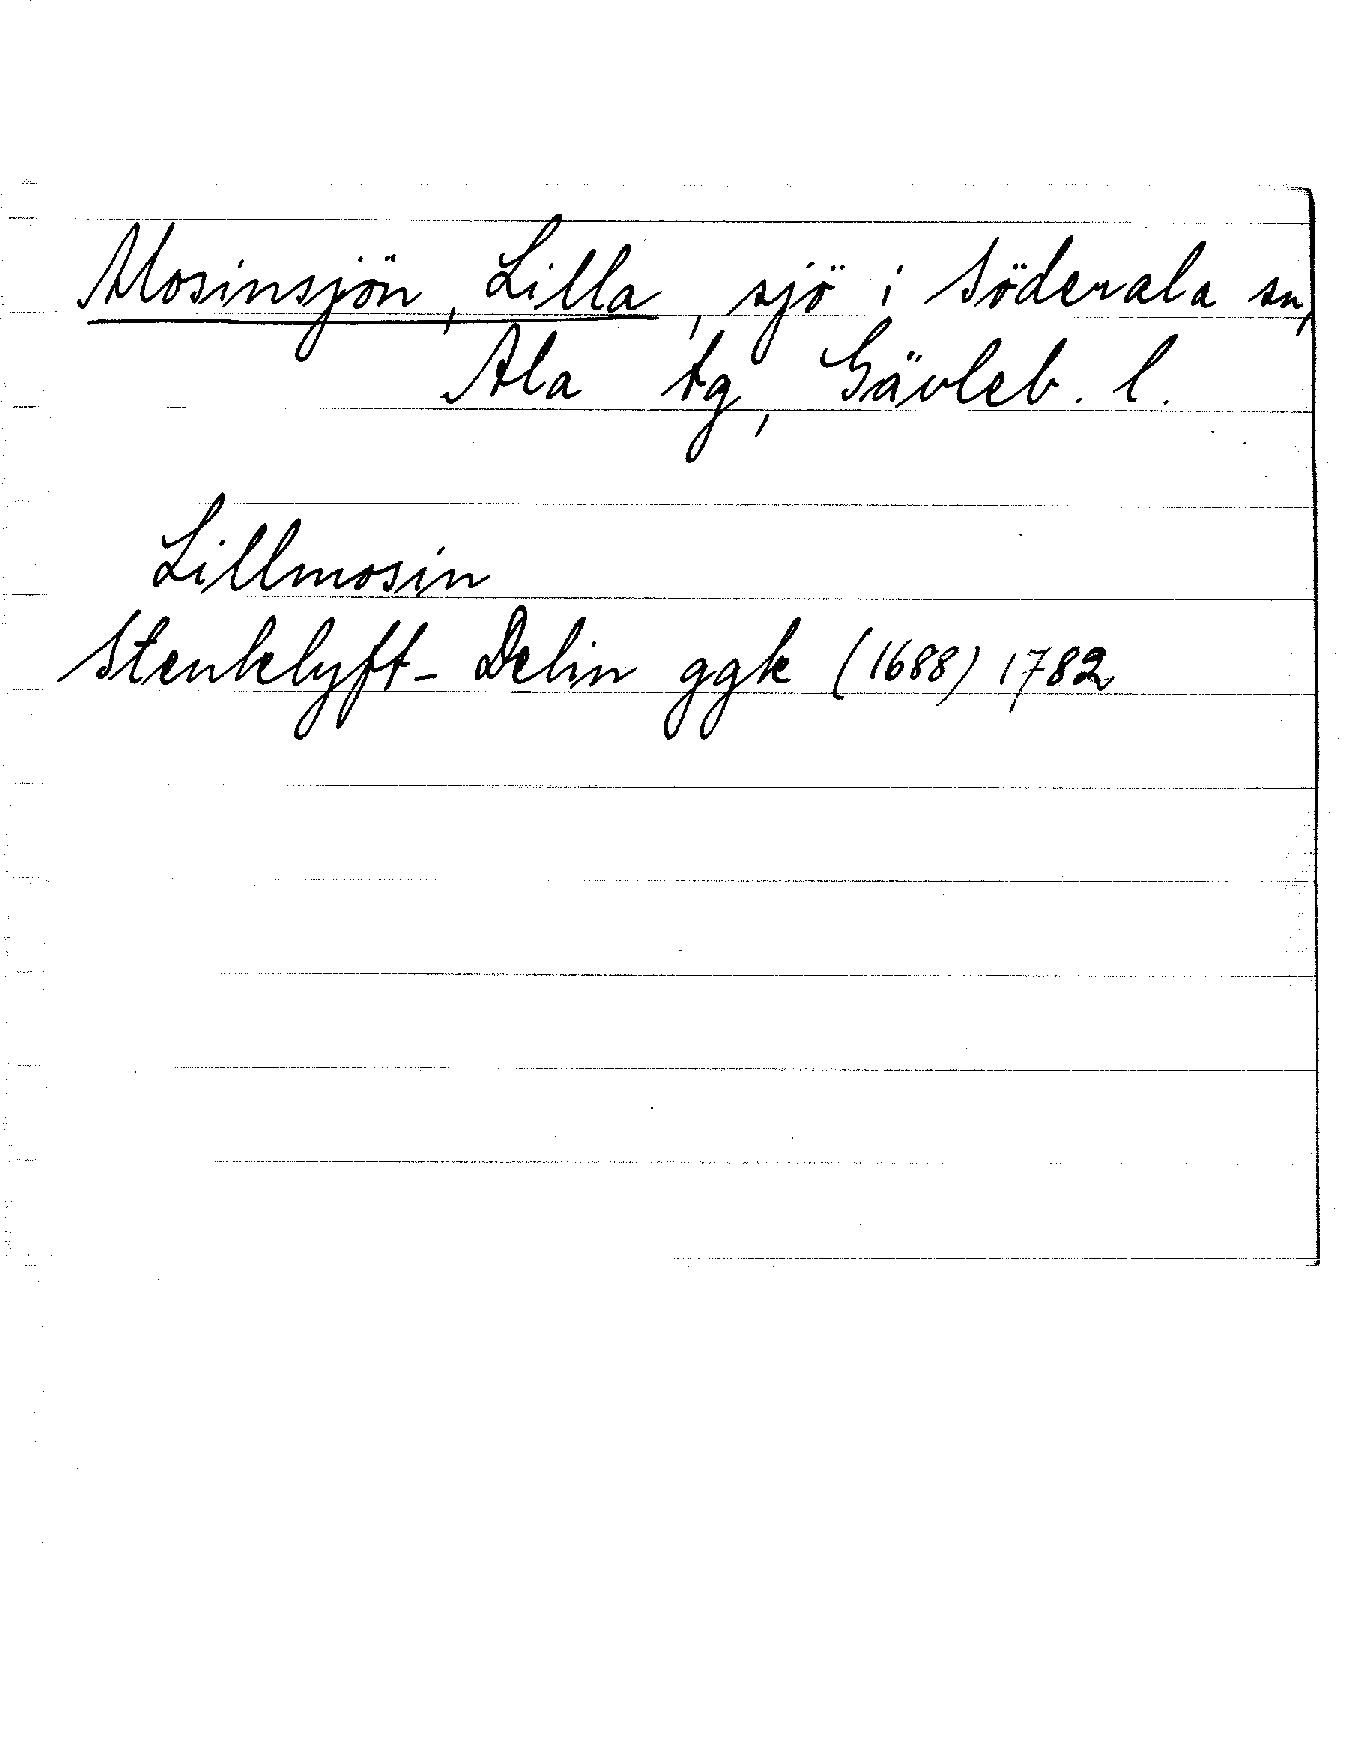 Mosinsjön, Lilla, sjö i Söderala sn,
Ala tg, Gävleb. l.
Lillmosin
Stenklyft- Delin ggk (1688) 1782